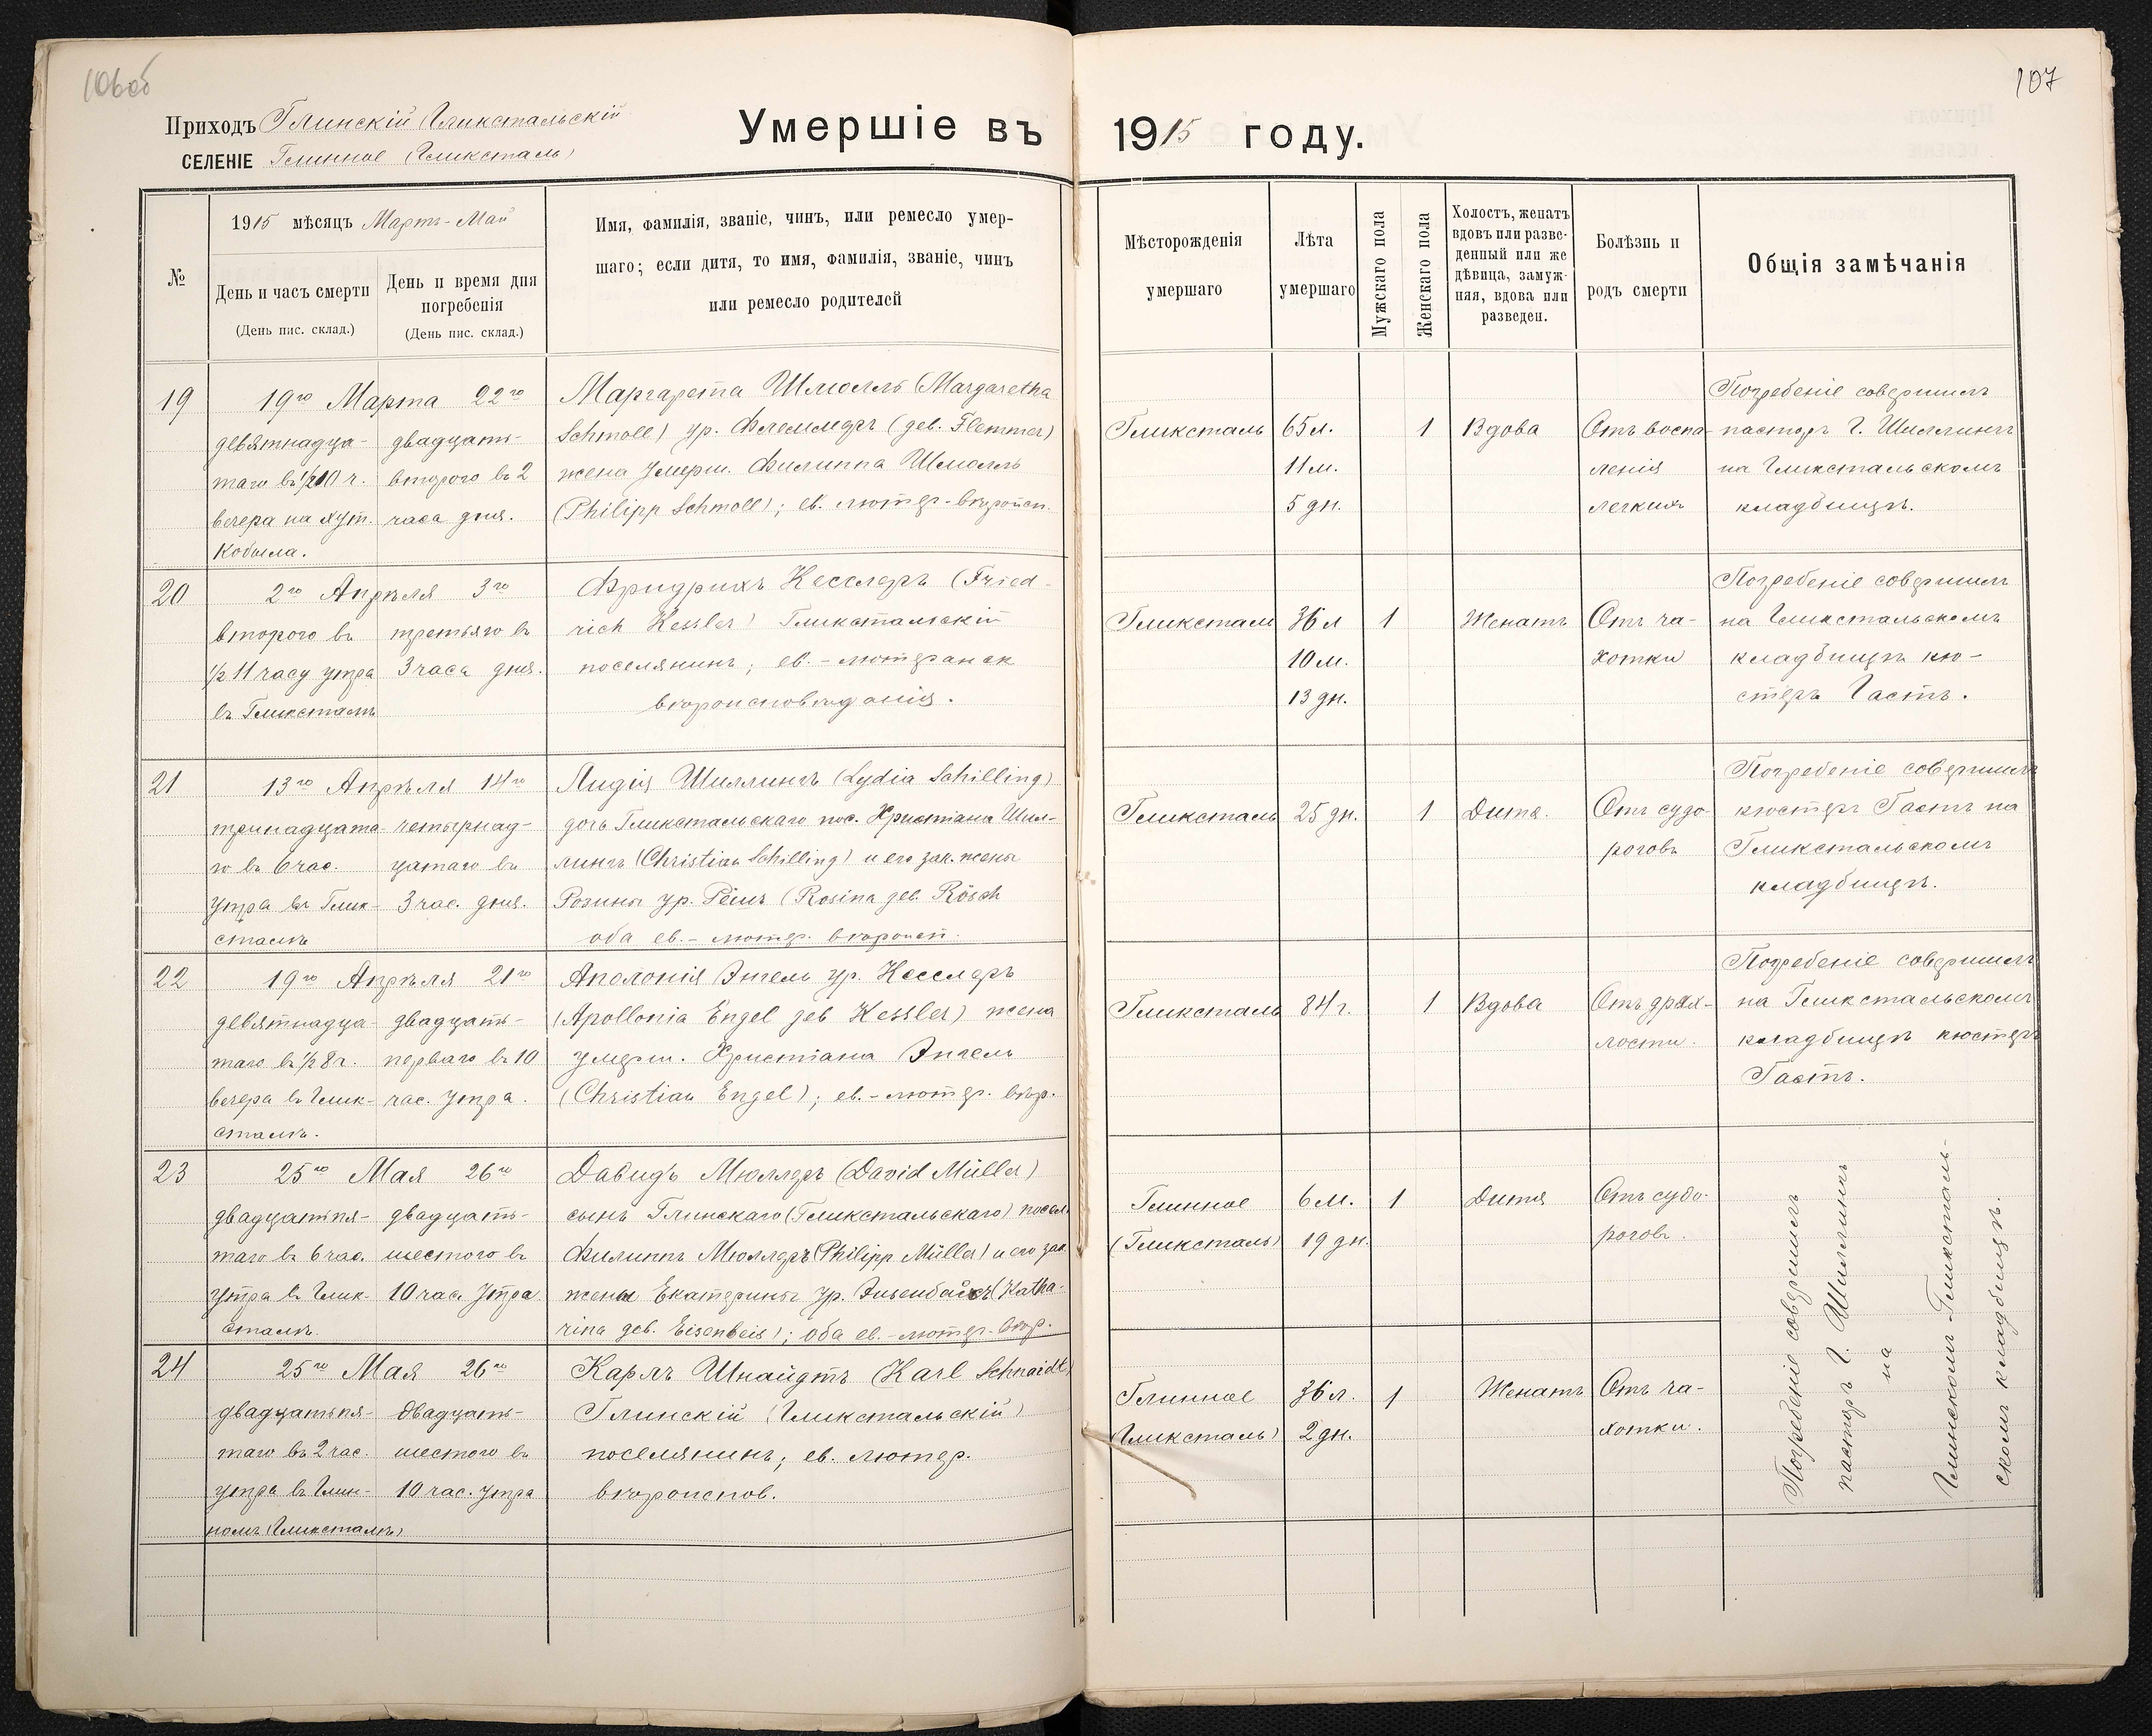 106об
107
Приходъ Глинскій (Гликстальскій
СЕЛЕНІЕ Глинное (Гликсталь)
Умершіе въ 1915 году.
№
1915 мѣсяцъ Мартъ-Май
День и часъ смерти
(День пис. склад.)
День и время дня
погребенія
(День пис. склад.)
Имя, фамилія, званіе, чинъ, или ремесло умер-
шаго; если дитя, то имя, фамилія, званіе, чинъ
или ремесло родителей
Мѣсторожденія
умершаго
Лѣта
умершаго
Мужскаго пола
Женскаго пола
Холостъ, женатъ
вдовъ или разве-
денный или же
дѣвица, замуж-
няя, вдова или
разведен.
Болѣзнь и
родъ смерти
Общія замѣчанія
19
19го Марта 22го
девятнадца-
таго въ ½10 ч.
вечера на хут.
Кобыла.
двадцать-
второго въ 2
часа дня.
Маргарета Шмолль (Margaretha
Schmoll) ур. Флеммеръ (geb. Flemmer)
жена умерш. Филиппа Шмолль
(Philipp Schmoll); ев. лютер-вѣроисп.
Гликсталь
65 л.
11 м.
5 дн.
1
Вдова
Отъ воспа-
ленія
легкихъ
Погребеніе совершилъ
пасторъ Г. Шиллингъ
на Гликстальскомъ
кладбищѣ.
20
2го Апрѣля 3го
второго въ
½ 11 часу утра
въ Гликсталѣ
третьяго въ
3 часа дня.
Фридрихъ Кесслеръ (Fried-
rich Kessler) Гликстальскій
поселянинъ; ев.-лютеранск
вѣроисповѣданія.
Гликсталь
36 л
10 м.
13 дн.
1
Женатъ
Отъ ча-
хотки
Погребеніе совершилъ
на Гликстальскомъ
кладбищѣ кю-
стеръ Гастъ.
21
13го Апрѣля 14го
тринадцата-
го въ 6 час.
утра въ Глик-
сталѣ
четырнад-
цатаго въ
3 час. дня.
Лидія Шиллингъ (Lydia Schilling)
дочь Гликстальскаго пос. Христіана Шил-
лингъ (Christian Schilling) и его зак. жены
Розины ур. Рёшъ (Rosina geb. Rösch
оба ев.-лютер. вѣроисп.
Гликсталь
25 дн.
1
Дитя.
Отъ судо-
роговъ
Погребеніе совершилъ
кюстеръ Гастъ на
Гликстальскомъ
кладбищѣ.
22
19го Апрѣля 21го
девятнадца-
таго въ ½ 8 ч.
вечера въ Глик-
сталѣ.
двадцать-
перваго въ 10
час. утра.
Аполонія Энгель ур. Кесслеръ
(Apollonia Engel geb Kessler) жена
умерш. Христіана Энгель
(Christian Engel); ев.-лютер. вѣр.
Гликсталь
84 г.
1
Вдова
Отъ дрях-
лости.
Погребеніе совершилъ
на Гликстальскомъ
кладбищѣ кюстеръ
Гастъ.
23
25го Мая 26го
двадцатьпя-
таго въ 6 час.
утра въ Глик-
сталѣ.
двадцать-
шестого въ
10 час. утра
Давидъ Мюллеръ (David Müller)
сынъ Глинскаго (Гликстальскаго) посел.
Филиппъ Мюллеръ (Philipp Müller) и его зак.
жены Екатерины ур. Эйзенбайсъ (Katha-
rina geb. Eisenbeis); оба ев.-лютер-вѣр.
Глинное
(Гликсталь)
6 м.
19 дн.
1
Дитя
Отъ судо-
роговъ.
24
25го Мая 26го
двадцатьпя-
таго въ 2 час.
утра въ Глин-
номъ (Гликсталѣ)
двадцать-
шестого въ
10 час. утра
Карлъ Шнайдтъ (Karl Schnaidt)
Глинскій (Гликстальскій)
поселянинъ; ев. лютер.
вѣроиспов.
Глинное
(Гликсталь)
36 л.
2 дн.
1
Женатъ
Отъ ча-
хотки.
Погребеніе совершилъ
пасторъ Г. Шиллингъ
на
Глинскомъ-Гликсталь-
скомъ кладбищѣ.